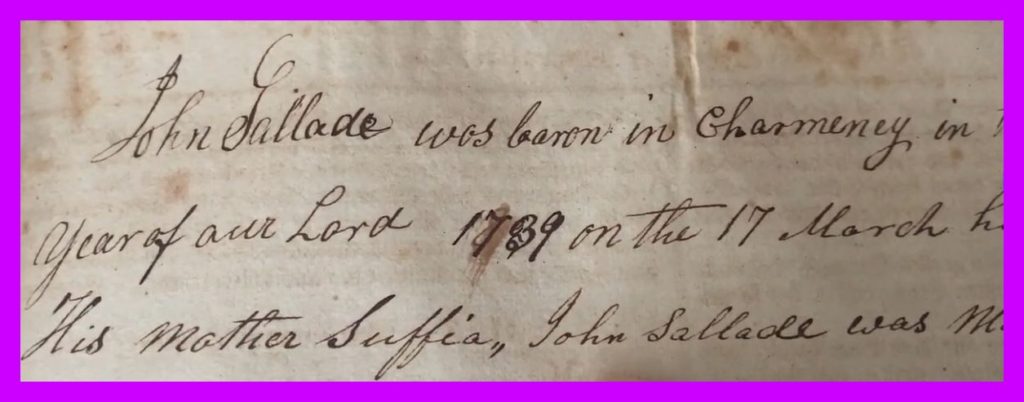 John Sallade was baron in Charmeney in
Year of our Lord 1739 on the 17 March
His Mother Suffia,, John Sallade was